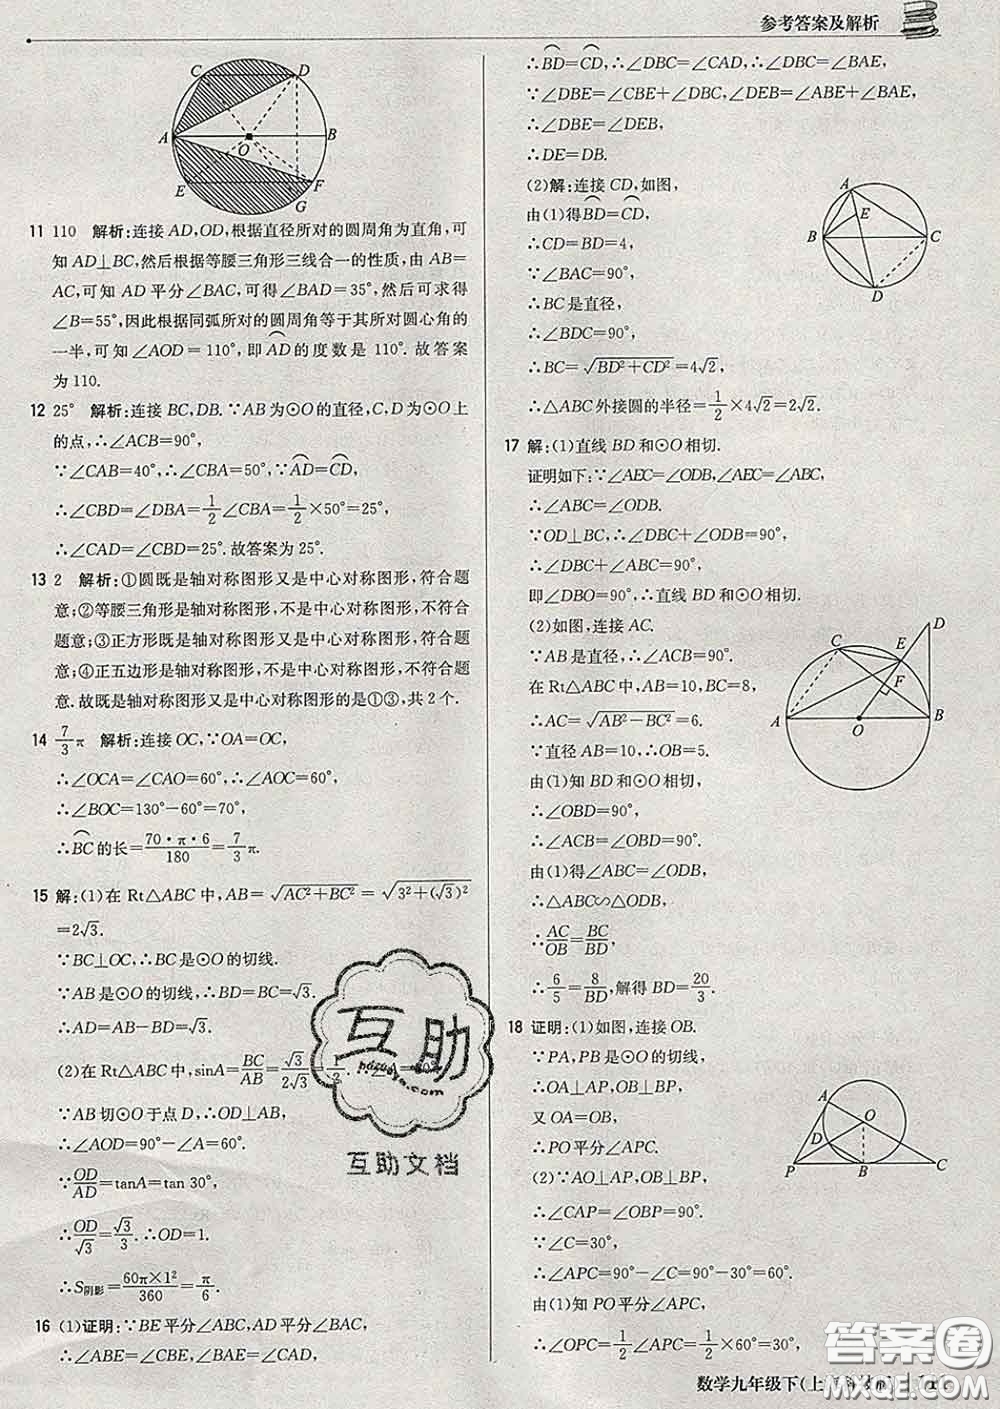 参考答案及解析
C
D
A
O
B
E
F
G
11 110 解析:连接 AD,OD,根据直径所对的圆周角为直角,可
知 AD⊥BC,然后根据等腰三角形三线合一的性质,由 AB=
AC,可知 AD 平分∠BAC,可得∠BAD=35°,然后可求得
∠B=55°,因此根据同弧所对的圆周角等于其所对圆心角的
一半,可知∠AOD=110°,即 AD⌒ 的度数是 110°. 故答案
为 110.
12 25° 解析:连接 BC,DB. ∵AB 为⊙O 的直径,C,D 为⊙O 上
的点,∴∠ACB=90°,
∵∠CAB=40°,∴∠CBA=50°,∵AD⌒=CD⌒,
∴∠CBD=∠DBA=1/2∠CBA=1/2×50°=25°,
∴∠CAD=∠CBD=25°. 故答案为 25°.
13 2 解析:①圆既是轴对称图形又是中心对称图形,符合题
意;②等腰三角形是轴对称图形,不是中心对称图形,不符合
题意;③正方形既是轴对称图形又是中心对称图形,符合题
意;④正五边形是轴对称图形,不是中心对称图形,不符合题
意. 故既是轴对称图形又是中心对称图形的是①③,共 2 个.
14 7/3π 解析:连接 OC,∵OA=OC,
∴∠OCA=∠CAO=60°,∴∠AOC=60°,
∴∠BOC=130°-60°=70°,
∴BC⌒ 的长=70·π·6/180=7/3π.
15 解:(1)在 Rt△ABC 中,AB=√(AC²+BC²)=√(3²+(√3)²)
=2√3.
∵BC⊥OC,∴BC 是⊙O 的切线.
∵AB 是⊙O 的切线,∴BD=BC=√3.
∴AD=AB-BD=√3.
(2)在 Rt△ABC 中,sinA=BC/AB=√3/2√3=1/2. ∴∠A=30°.
∵AB 切⊙O 于点 D,∴OD⊥AB.
∴∠AOD=90°-∠A=60°.
∵OD/AD=tanA=tan 30°,
∴OD/√3=√3/3. ∴OD=1.
∴S阴影=60π×1²/360=π/6.
16 (1)证明:∵BE 平分∠ABC,AD 平分∠BAC,
∴∠ABE=∠CBE,∠BAE=∠CAD,
∴BD⌒=CD⌒,∴∠DBC=∠CAD,∴∠DBC=∠BAE,
∵∠DBE=∠CBE+∠DBC,∠DEB=∠ABE+∠BAE,
∴∠DBE=∠DEB,
∴DE=DB.
(2)解:连接 CD,如图,
由(1)得BD⌒=CD⌒,
∴CD=BD=4,
∵∠BAC=90°,
∴BC 是直径,
∴∠BDC=90°,
∴BC=√(BD²+CD²)=4√2,
∴△ABC 外接圆的半径=1/2×4√2=2√2.
A
E
B
C
D
17 解:(1)直线 BD 和⊙O 相切.
证明如下:∵∠AEC=∠ODB,∠AEC=∠ABC,
∴∠ABC=∠ODB.
∵OD⊥BC,∴∠DBC+∠ODB=90°,
∴∠DBC+∠ABC=90°,
即∠DBO=90°,∴直线 BD 和⊙O 相切.
(2)如图,连接 AC.
∵AB 是直径,∴∠ACB=90°.
在 Rt△ABC 中,AB=10,BC=8,
∴AC=√(AB²-BC²)=6.
∵直径 AB=10,∴OB=5.
由(1)知 BD 和⊙O 相切,
∴∠OBD=90°,
∴∠ACB=∠OBD=90°.
由(1)得∠ABC=∠ODB,
∴△ABC∽△ODB,
∴AC/OB=BC/BD,
∴6/5=8/BD,解得 BD=20/3.
D
C
E
F
A
O
B
18 证明:(1)如图,连接 OB.
∵PA,PB 是⊙O 的切线,
∴OA⊥AP,OB⊥BP,
又 OA=OB,
∴PO 平分∠APC.
(2)∵AO⊥AP,OB⊥BP,
∴∠CAP=∠OBP=90°.
∵∠C=30°,
∴∠APC=90°-∠C=90°-30°=60°.
由(1)知 PO 平分∠APC,
∴∠OPC=1/2∠APC=1/2×60°=30°,
A
O
D
P
B
C
互助
hdzuoye.com
互助文档
答案圈
数学九年级下(上